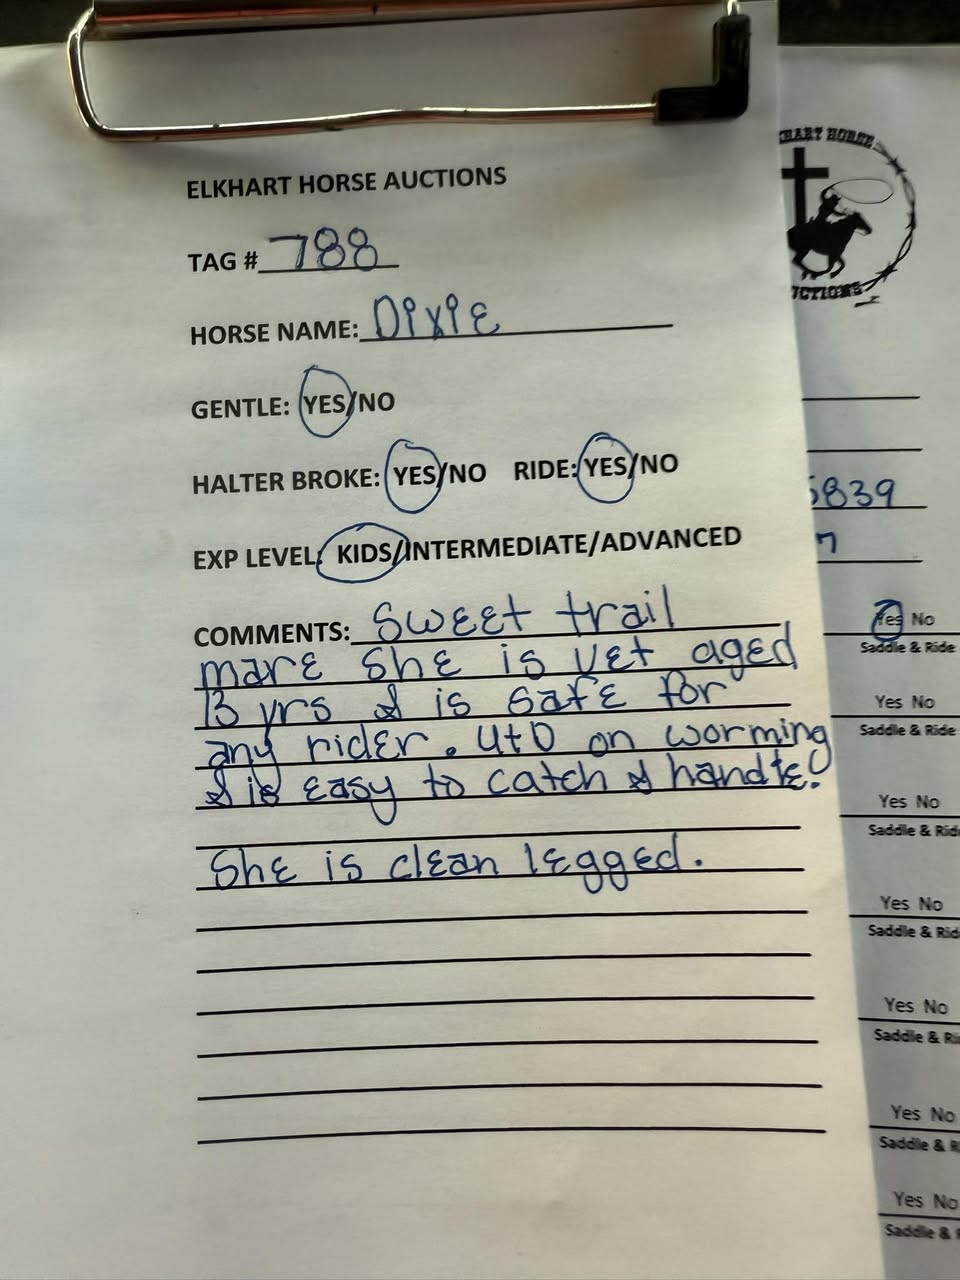 ELKHART HORSE AUCTIONS
TAG # 788
HORSE NAME: Dixie
GENTLE: YES/NO
HALTER BROKE: YES/NO RIDE: YES/NO
EXP LEVEL: KIDS/INTERMEDIATE/ADVANCED
COMMENTS: Sweet trail
mare She is vet aged
13 yrs & is safe for
any rider. UtD on worming
& is easy to catch & handle!
She is clean legged.
HART HORSE
UCTIONS
5839
7
Yes No
Saddle & Ride
Yes No
Saddle & Ride
Yes No
Saddle & Rid
Yes No
Saddle & Rid
Yes No
Saddle & Ri
Yes No
Saddle & R
Yes No
Saddle &